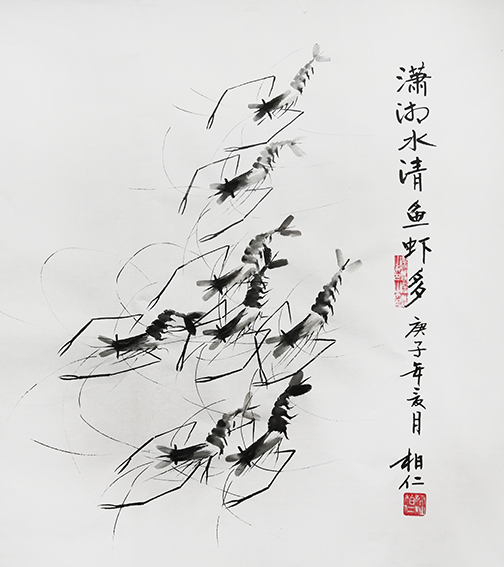 潇湘水清鱼虾多
庚子年亥月
相仁